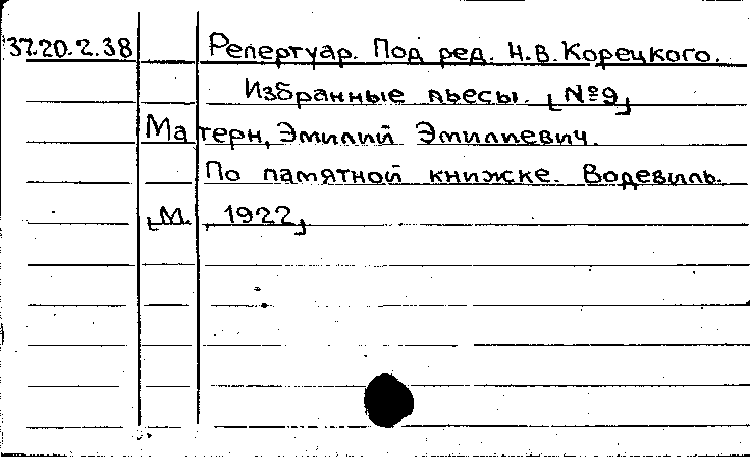 37.20.2.38 Репертуар. Под ред. Н.В. Корецкого.
Избранные пьесы. [№9]
Матерн, Эмилий Эмилиевич.
По памятной книжке. Водевиль.
[М., 1922]